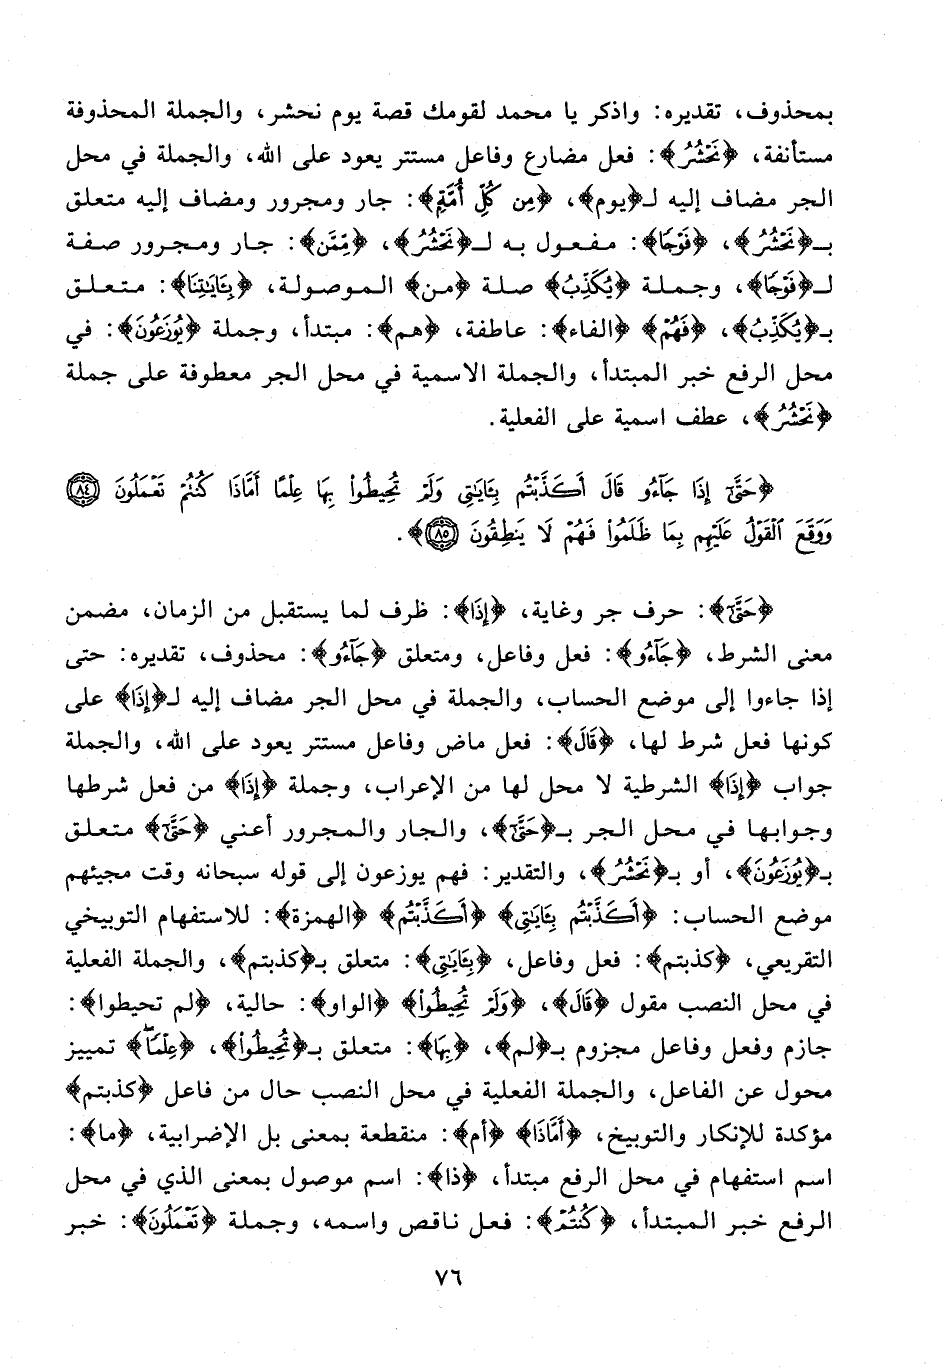 بمحذوف، تقديره: واذكر يا محمد لقومك قصة يوم نحشر، والجملة المحذوفة
مستأنفة، ﴿نَحْشُرُ﴾: فعل مضارع وفاعل مستتر يعود على الله، والجملة في محل
الجر مضاف إليه لـ﴿يوم﴾، ﴿مِن كُلِّ أُمَّةٍ﴾: جار ومجرور ومضاف إليه متعلق
بـ﴿نَحْشُرُ﴾، ﴿فَوْجًا﴾: مفعول به لـ﴿نَحْشُرُ﴾، ﴿مِّمَّن﴾: جار ومجرور صفة
لـ﴿فَوْجًا﴾، وجملة ﴿يُكَذِّبُ﴾ صلة ﴿من﴾ الموصولة، ﴿بِـَٔايَٰتِنَا﴾: متعلق
بـ﴿يُكَذِّبُ﴾، ﴿فَهُمْ﴾ ﴿الفاء﴾: عاطفة، ﴿هم﴾: مبتدأ، وجملة ﴿يُوزَعُونَ﴾: في
محل الرفع خبر المبتدأ، والجملة الاسمية في محل الجر معطوفة على جملة
﴿نَحْشُرُ﴾، عطف اسمية على الفعلية.
﴿حَتَّىٰٓ إِذَا جَآءُو قَالَ أَكَذَّبْتُم بِـَٔايَٰتِى وَلَمْ تُحِيطُوا۟ بِهَا عِلْمًا أَمَّاذَا كُنتُمْ تَعْمَلُونَ ٨٤
وَوَقَعَ ٱلْقَوْلُ عَلَيْهِم بِمَا ظَلَمُوا۟ فَهُمْ لَا يَنطِقُونَ ٨٥﴾.
﴿حَتَّىٰٓ﴾: حرف جر وغاية، ﴿إِذَا﴾: ظرف لما يستقبل من الزمان، مضمن
معنى الشرط، ﴿جَآءُو﴾: فعل وفاعل، ومتعلق ﴿جَآءُو﴾: محذوف، تقديره: حتى
إذا جاءوا إلى موضع الحساب، والجملة في محل الجر مضاف إليه لـ﴿إِذَا﴾ على
كونها فعل شرط لها، ﴿قَالَ﴾: فعل ماض وفاعل مستتر يعود على الله، والجملة
جواب ﴿إِذَا﴾ الشرطية لا محل لها من الإعراب، وجملة ﴿إِذَا﴾ من فعل شرطها
وجوابها في محل الجر بـ﴿حَتَّىٰٓ﴾، والجار والمجرور أعني ﴿حَتَّىٰٓ﴾ متعلق
بـ﴿يُوزَعُونَ﴾، أو بـ﴿نَحْشُرُ﴾، والتقدير: فهم يوزعون إلى قوله سبحانه وقت مجيئهم
موضع الحساب: ﴿أَكَذَّبْتُم بِـَٔايَٰتِى﴾ ﴿أَكَذَّبْتُم﴾ ﴿الهمزة﴾: للاستفهام التوبيخي
التقريعي، ﴿كذبتم﴾: فعل وفاعل، ﴿بِـَٔايَٰتِى﴾: متعلق بـ﴿كذبتم﴾، والجملة الفعلية
في محل النصب مقول ﴿قَالَ﴾، ﴿وَلَمْ تُحِيطُوا۟﴾ ﴿الواو﴾: حالية، ﴿لم تحيطوا﴾:
جازم وفعل وفاعل مجزوم بـ﴿لم﴾، ﴿بِهَا﴾: متعلق بـ﴿تُحِيطُوا۟﴾، ﴿عِلْمًا﴾ تمييز
محول عن الفاعل، والجملة الفعلية في محل النصب حال من فاعل ﴿كذبتم﴾
مؤكدة للإنكار والتوبيخ، ﴿أَمَّاذَا﴾ ﴿أم﴾: منقطعة بمعنى بل الإضرابية، ﴿ما﴾:
اسم استفهام في محل الرفع مبتدأ، ﴿ذا﴾: اسم موصول بمعنى الذي في محل
الرفع خبر المبتدأ، ﴿كُنتُمْ﴾: فعل ناقص واسمه، وجملة ﴿تَعْمَلُونَ﴾: خبر
٧٦